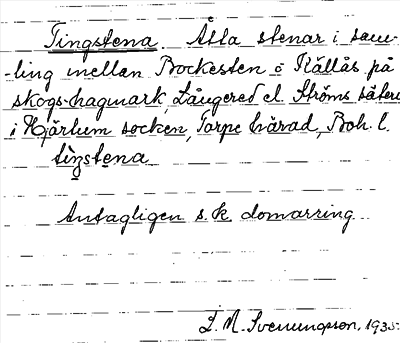 Tingstena. Åtta stenar i sam-
-ling mellan Bockesten o Kållås på
skogs-hagmark, Långered el. Ströms säteri
i Hjärtum socken, Torpe härad, Boh. l.
tìŋstena
Antagligen s.k. domarring.
L. M. Svenungsson, 1935.